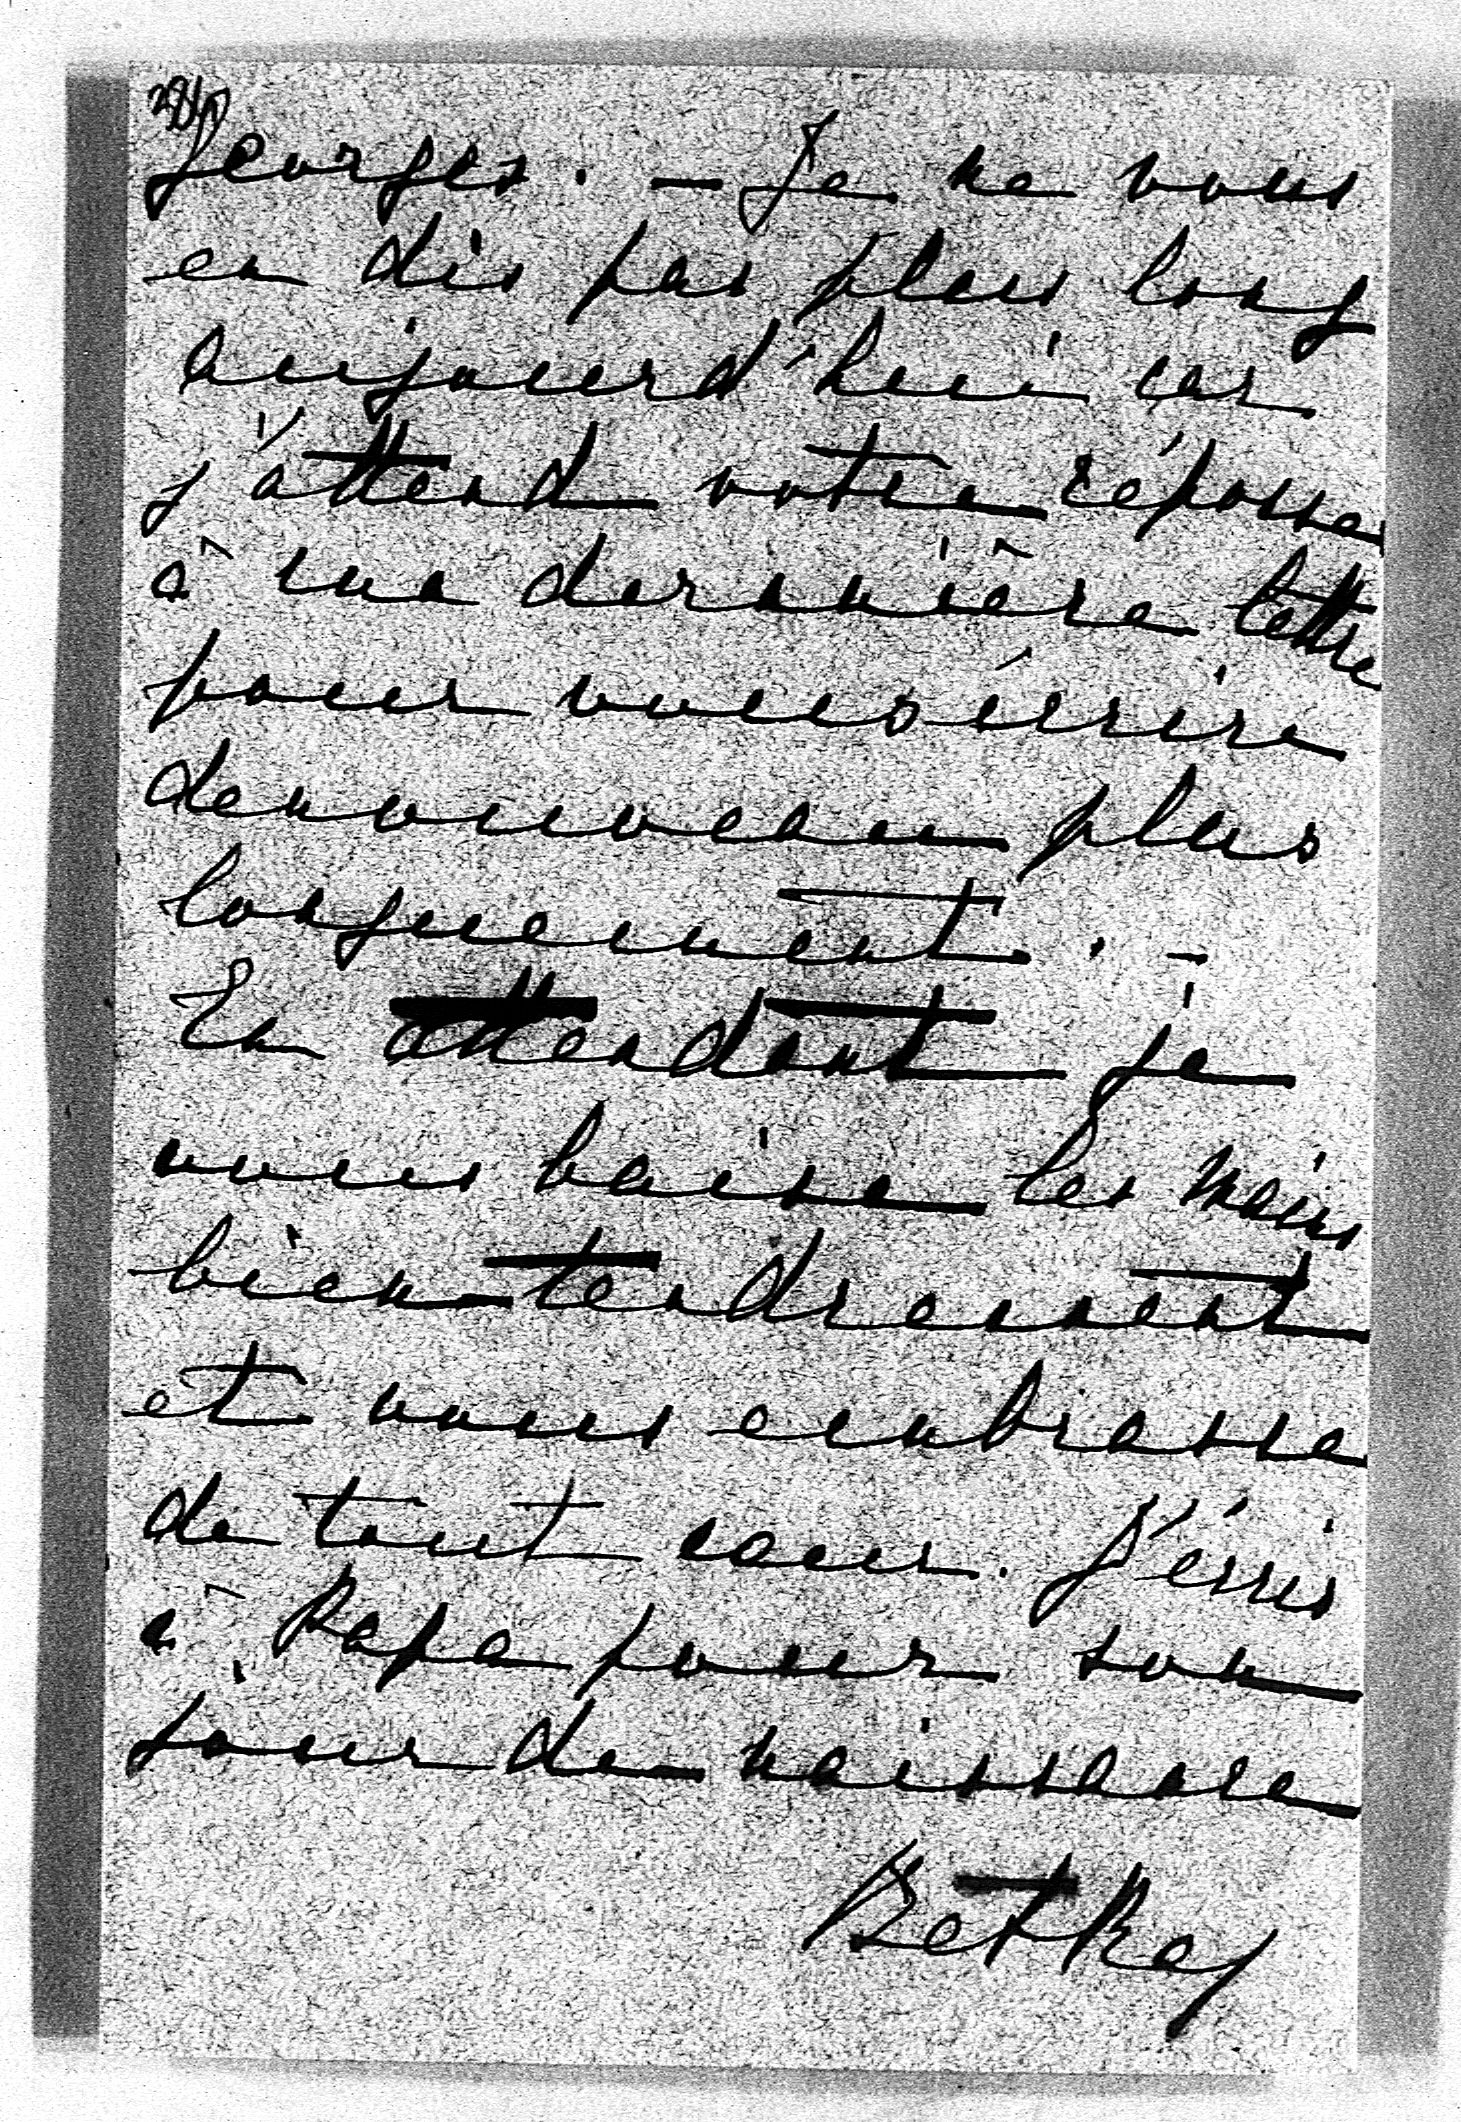 Georges. — Je ne vous
en dis pas plus long
aujourd'hui car
j'attend votre réponse
à ma dernière lettre
pour vous écrire
denouveau plus
longuement. —
En attendant je
vous baise les mains
bien tendrement
et vous embrasse
de tout cœur. J'écris
à Papa pour son
jour de naissance